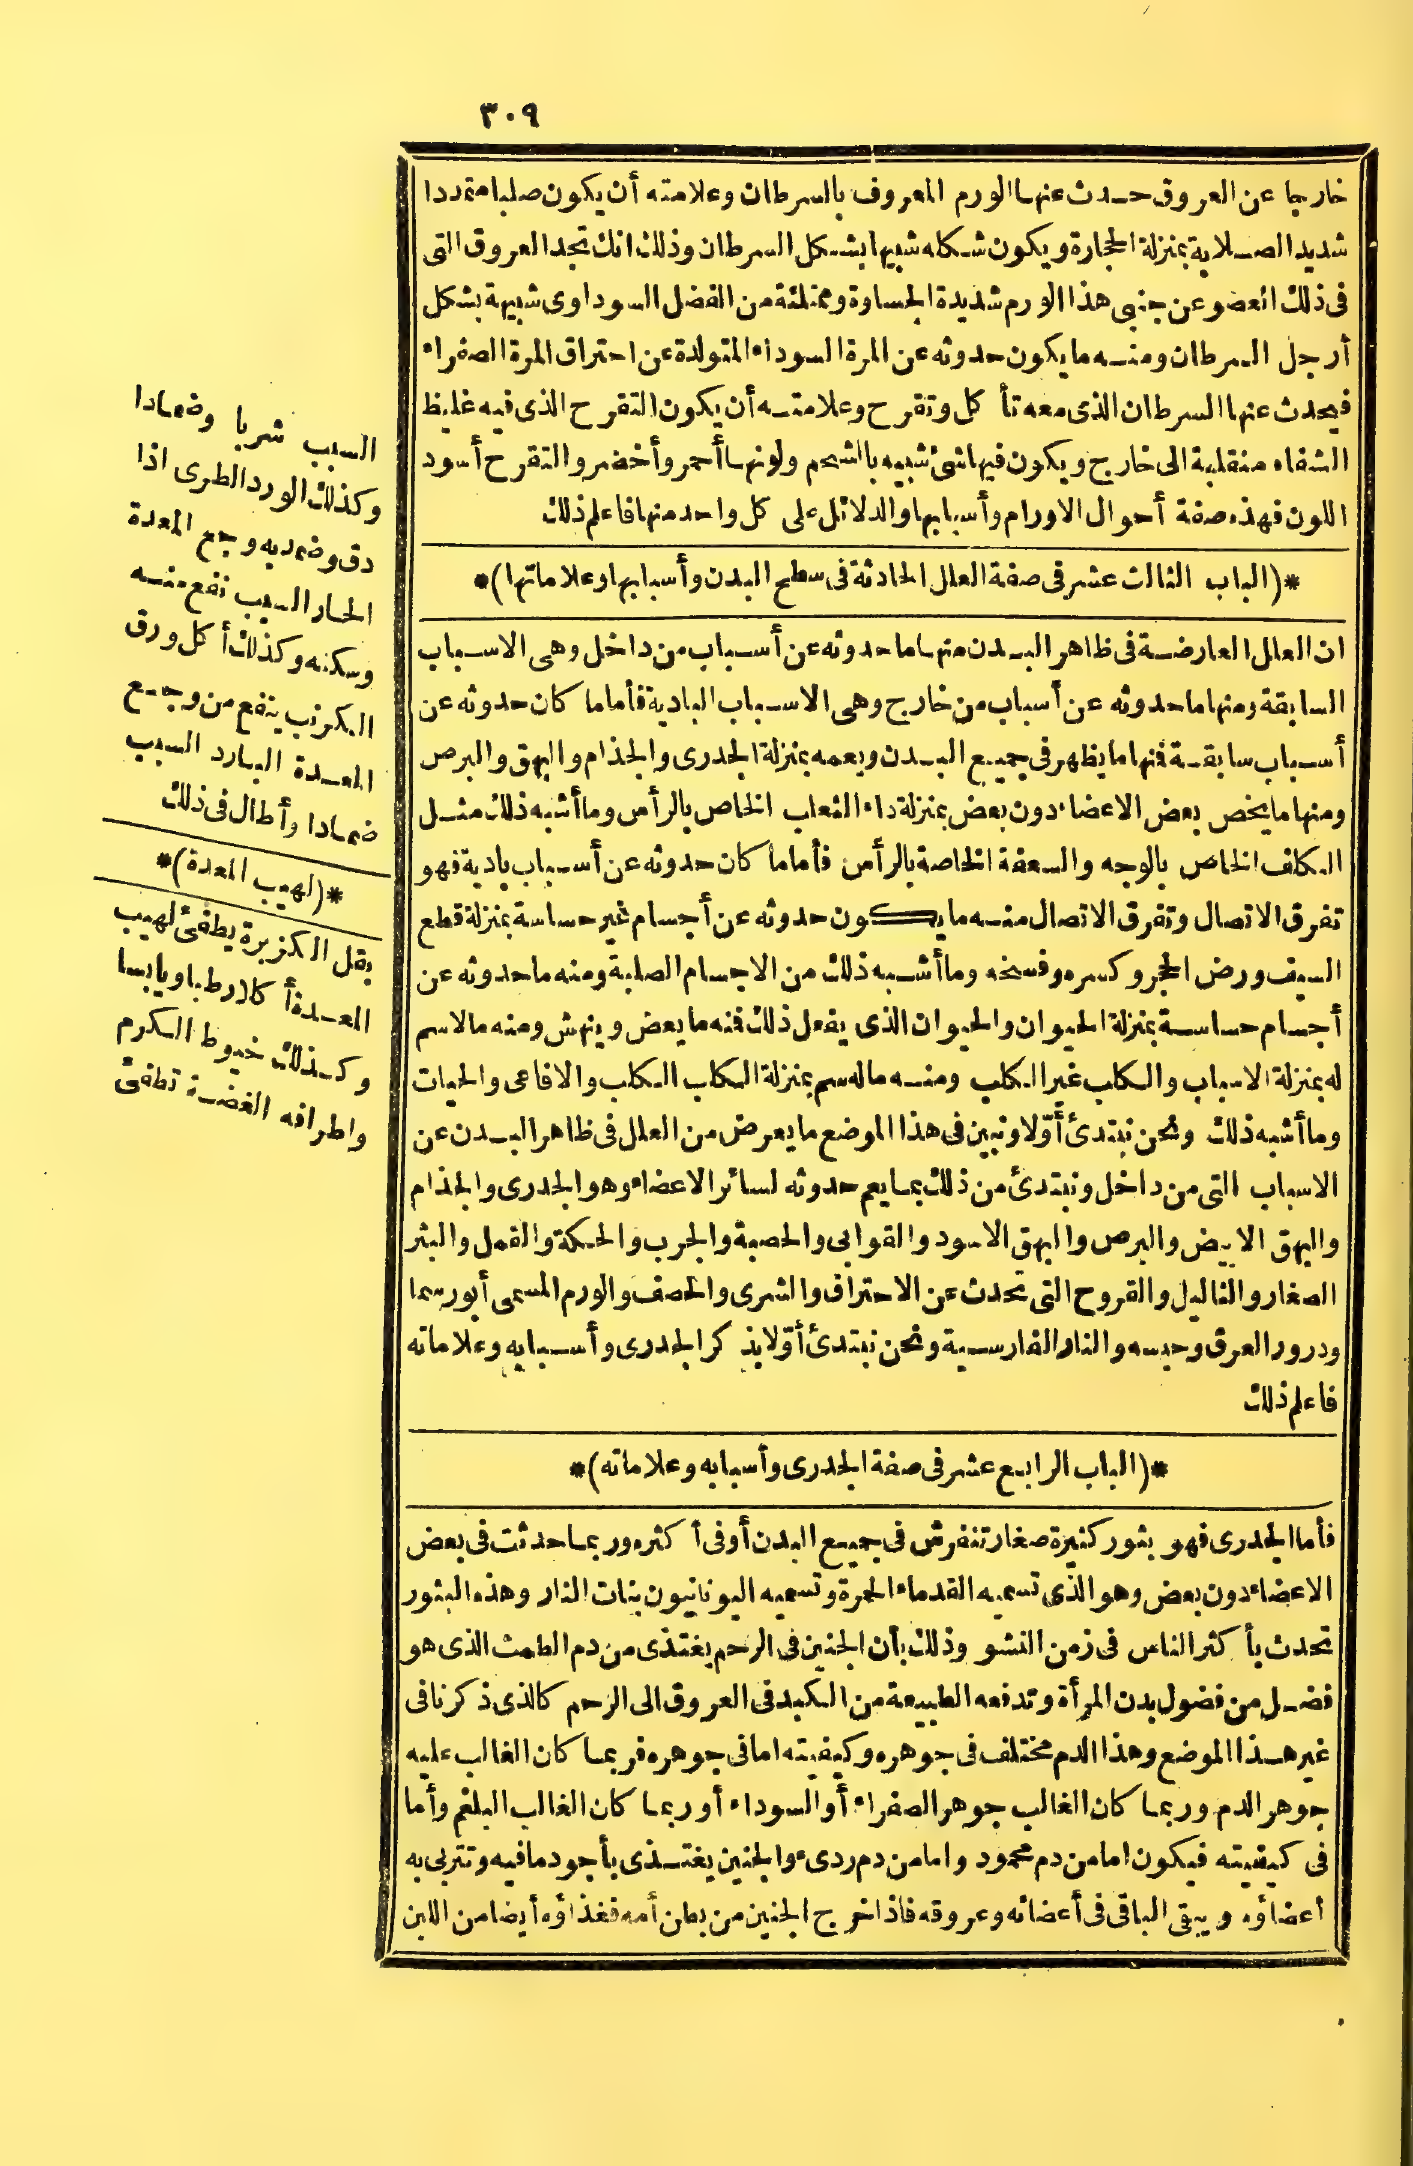 ٣٠٩
خارجا عن العروق حدث عنها الورم المعروف بالسرطان وعلامته أن يكون صلبا متمددا
شديد الصلابة بمنزلة الحجارة ويكون شكله شبيها بشكل السرطان وذلك انك تجد العروق التى
فى ذلك العضو عن جنبى هذا الورم شديدة الجساوة وممتلئة من الفضل السوداوى شبيهة بشكل
أرجل السرطان ومنه ما يكون حدوثه عن المرة السوداء المتولدة عن احتراق المرة الصفراء
فيحدث عنها السرطان الذى معه تأكل وتقرح وعلامته أن يكون التقرح الذى فيه غليظ
الشفاه منقلبة الى خارج ويكون فيها شئ شبيه بالشحم ولونها أحمر وأخضر والتقرح أسود
اللون فهذه صفة أحوال الاورام وأسبابها والدلائل على كل واحد منها فاعلم ذلك
*(الباب الثالث عشر فى صفة العلل الحادثة فى سطح البدن وأسبابها وعلاماتها)*
ان العلل العارضة فى ظاهر البدن منها ما حدوثه عن أسباب من داخل وهى الاسباب
السابقة ومنها ما حدوثه عن أسباب من خارج وهى الاسباب البادية فأما ما كان حدوثه عن
أسباب سابقة فنها ما يظهر فى جميع البدن ويعمه بمنزلة الجدرى والجذام والبهق والبرص
ومنها ما يخص بعض الاعضاء دون بعض بمنزلة داء الثعلب الخاص بالرأس وما أشبه ذلك مثل
الكلف الخاص بالوجه والسعفة الخاصة بالرأس فأما ما كان حدوثه عن أسباب بادية فهو
تفرق الاتصال وتفرق الاتصال منه ما يكون حدوثه عن أجسام غير حساسة بمنزلة قطع
السيف ورض الحجر وكسره وفسخه وما أشبه ذلك من الاجسام الصلبة ومنه ما حدوثه عن
أجسام حساسة بمنزلة الحيوان والحيوان الذى يفعل ذلك فنه ما يعض وينهش ومنه ما لا سم
له بمنزلة الاسباب والكلب غير الكلب ومنه ماله سم بمنزلة الكلب الكلب والافاعى والحيات
وما أشبه ذلك ونحن نبتدئ أوّلا ونبين فى هذا الموضع ما يعرض من العلل فى ظاهر البدن عن
الاسباب التى من داخل ونبتدئ من ذلك بما يعم حدوثه لسائر الاعضاء وهو الجدرى والجذام
والبهق الابيض والبرص والبهق الاسود والقوابى والحصبة والجرب والحكة والقمل والبثر
الصغار والثاليل والقروح التى تحدث عن الاحتراق والشرى والحصف والورم المسمى أبورسما
ودرور العرق وحبسه والنار الفارسية ونحن نبتدئ أوّلا بذكر الجدرى وأسبابه وعلاماته
فاعلم ذلك
*(الباب الرابع عشر فى صفة الجدرى وأسبابه وعلاماته)*
فأما الجدرى فهو بثور كثيرة صغار تنفرش فى جميع البدن أو فى أكثره وربما حدثت فى بعض
الاعضاء دون بعض وهو الذى تسميه القدماء الجمرة وتسميه اليونانيون بنات النار وهذه البثور
تحدث بأكثر الناس فى زمن النشو وذلك بأن الجنين فى الرحم يغتذى من دم الطمث الذى هو
فضل من فضول بدن المرأة وتدفعه الطبيعة من الكبد فى العروق الى الرحم كالذى ذكرنا فى
غير هذا الموضع وهذا الدم مختلف فى جوهره وكيفيته اما فى جوهره فربما كان الغالب عليه
جوهر الدم وربما كان الغالب جوهر الصفراء أو السوداء أو ربما كان الغالب البلغم وأما
فى كيفيته فيكون اما من دم محمود واما من دم ردىء والجنين يغتذى بأجود ما فيه وتتربى به
أعضاؤه ويبقى الباقى فى أعضائه وعروقه فاذا خرج الجنين من بطن أمه فغذاؤه أيضا من اللبن
السبب شربا وضمادا
وكذلك الورد الطرى اذا
دق وضمد به وجع المعدة
الحار السبب نفع منه
وسكنه وكذلك أكل ورق
الكرنب ينفع من وجع
المعدة البارد السبب
ضمادا وأطال فى ذلك
*(لهيب المعدة)*
بقل الكزبرة يطفئ لهيب
المعدة أكلا رطبا ويابسا
وكذلك خيوط الكرم
واطرافه الغضة تطفئ